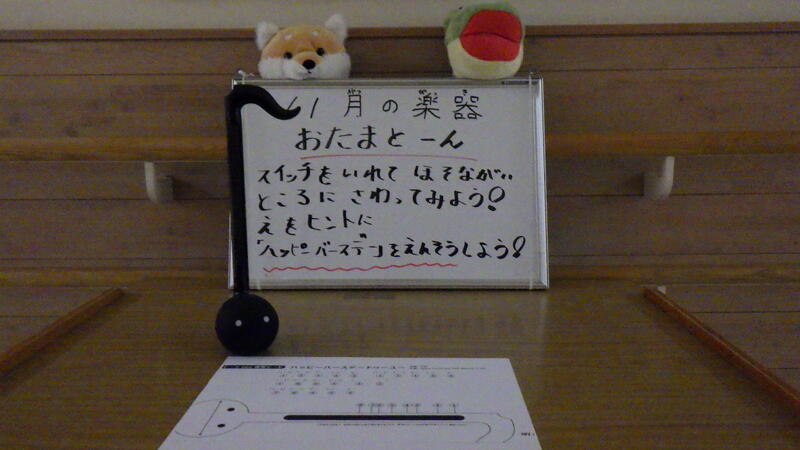 11月の楽器
おたまとーん
スイッチをいれて ほそながい
ところに さわってみよう!
えをヒントに
「ハッピーバースデー」をえんそうしよう!
ハッピーバースデートゥーユー